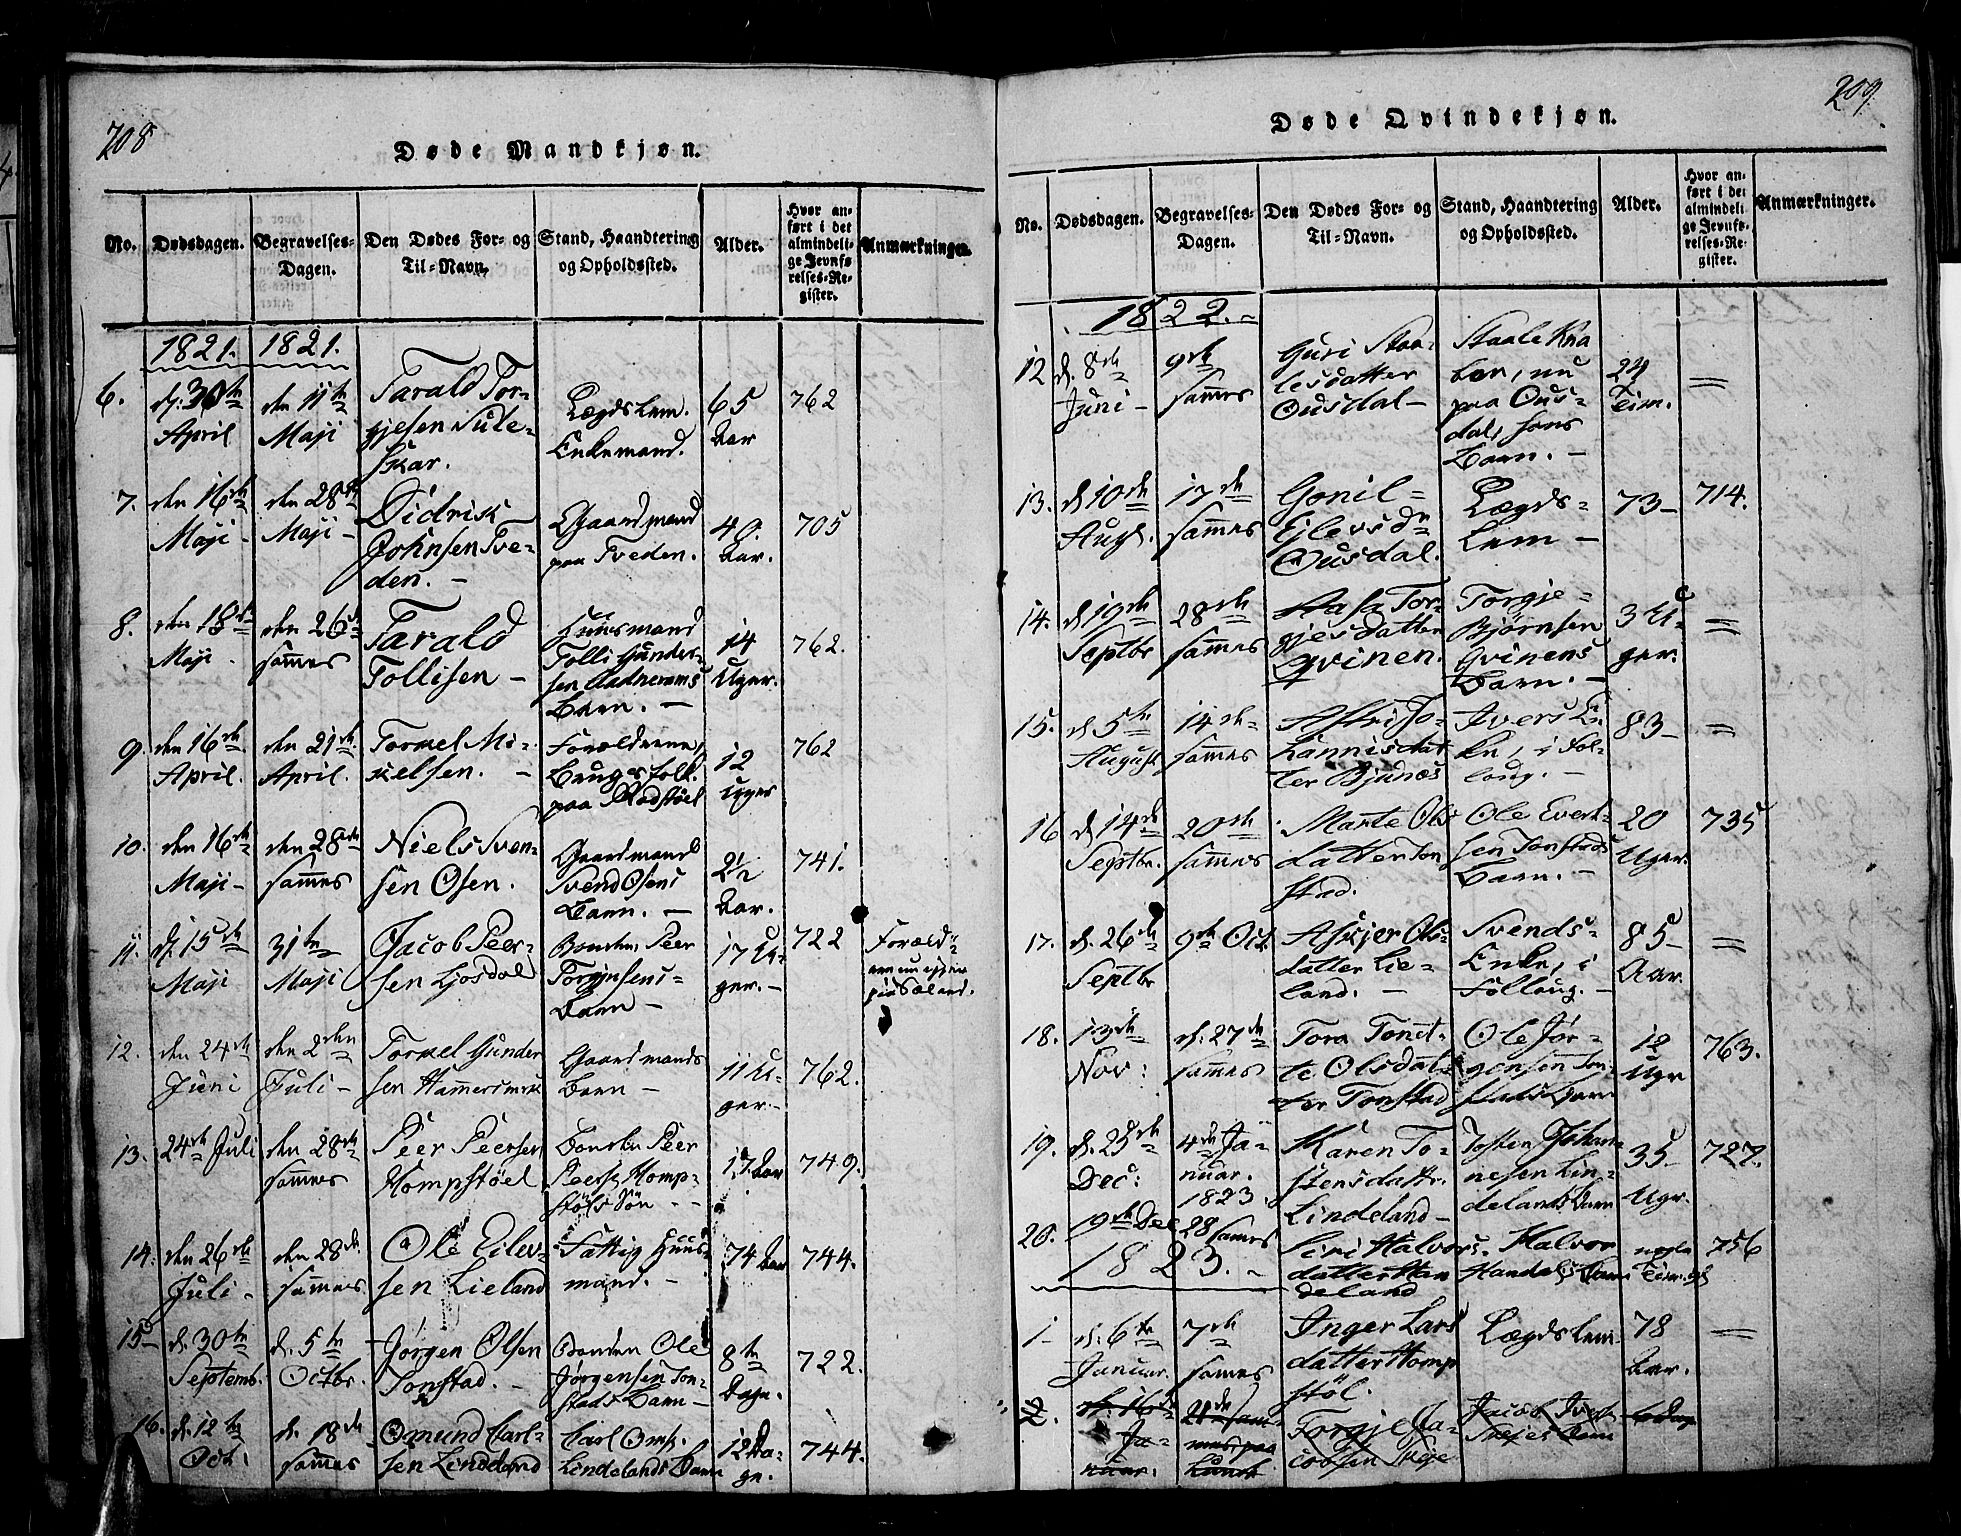 708
Døde Mandkjøn.
No.
Dødsdagen.
Begravelses-
Dagen.
Den Dødes For- og
Til-Navn.
Stand, Haandtering
og Opholdssted.
Alder.
Hvor an-
ført i det
almindeli-
ge Jevnfø
relses-Re-
gister.
Anmærkninger.
1821. 1821.
6.
d. 30te
April
den 11te
Maji
Tarald Tor-
gjesen Sule-
skar.
Lægdslem.
Enkemand.
65
Aar
762
7.
den 16de
Maji -
den 28de
Maji -
Didrik
Johnsen Tve-
den. -
Gaardmand
paa Tveden.
49
Aar.
705
8.
den 18de
Maji -
den 26de
sammes
Tarald
Tollisen -
Huusmand
Tolli Gunder-
sen
Barn. -
14
Uger.
762.
9.
den 16de
April.
den 21de
April.
Tormel Mi-
kelsen. -
Forældrene,
Brugesfolk
paa Rodstøel
12
Uger
762
10.
den 16de
Maji -
den 28de
sammes
Niels Sven-
sen Osen.
Gaardmand
Svend Osens
Barn. -
2½
Aar.
741.
11.
d. 15de
Maji
31te
Maji
Jacob Peer-
sen Ljosdal
Bonden Peer
Torgjusens-
Barn -
17 U-
ger. -
722
Foræld-
12.
den 24de
Juni
den 2den
Juli -
Tormel Gunder
sen Hamersmrk
Gaardmands
Barn -
11 U-
ger. -
762.
13.
24de Juli
den 28de
sammes
Peer Peersen
Kompstøel
Bonden Peer
Peers. Homp-
støls Søn - -
17 Aar
749.
14.
den 26de
Juli -
den 28de
sammes
Ole Eilev-
sen Lieland
Fattig Huus-
mand. -
74 Aar
744.
15
d. 30te
Septemb.
d. 5te
Octbr.
Jørgen Olsen
Tonstad. -
Bonden Ole
Jørgensen Ton-
stads Barn -
8te
Dage.
722.
16.
d. 12te
Oct.
d. 18de
sammes
Omund Carl-
sen Lindeland
Carl Oms.
Lindelands Barn
12 Da-
ge.
744.
209.
Døde Qvindekjøn.
No.
Dødsdagen.
Begravelses-
Dagen.
Den Dødes For- og
Til-Navn.
Stand, Haandtering
og Opholdssted.
Alder.
Hvor an-
ført i det
almindeli-
ge Jevnfø-
relses-Re-
gister.
Anmærkninger.
1822. -
12
d. 8de
Juni -
9de
sammes
Guri Staa-
lesdatter
Ousdal -
Staale Kna
ben, nu
paa Ous-
dal, hans
Barn. -
24
Teim.
=
13.
d. 10de
Augs.
17de
sammes
Gonil -
Ejlevsdr
Ousdal.
Lægds-
Lem -
73 -
714.
14.
d. 19de
Septbr
28de
sammes
Aasa Tor-
gjesdatter
Qvinen.
Torgje -
Bjørnsen
Qvinens
Barn. -
3 U-
ger.
=
15.
d. 5te
August
14de
sammes
Astri Jo-
hannisdat
ter Bjunæs
Ivers En
ke, i Fol-
laug. -
83 -
=
16
d. 14de
Septbr.
20de
sammes
Marte Ols
datter Ton
stad.
Ole Evert-
sen Tonstads
Barn. -
20
Uger.
735
17.
d. 26de
Septbr
9de Oct
Askjer Ols-
datter Lie-
land. -
Svends-
Enke, i
Follaug. -
85 -
Aar.
=
18.
13de
Nov:
d. 27de
sammes
Tora Tonet-
te Olsdat-
ter Tonstad
Ole Jør-
gensen Ton-
stads Barn
12
Ugr
763.
19.
d. 25de
Dec:
4de Ja-
nuar.
1823
Karen To-
stensdattr.
Lindeland -
Tosten Johan-
nesen Lin-
delands Barn
35 -
Ugr.
727.
20.
19de Dec
28 sames
Siri Halvors-
datter Han
deland
Halvor
Handelds Barn
nogle
Teim.
756
1823. -
1 -
d. 6te
Januar.
7de
sammes
Inger Lars
datter Homp
støl.
Lægdslem
78
Aar.
=
2.
d. 16de
Ja-
nuar.
21de sam-
mes, paa
Torgje Ja-
cobsen
Jacob